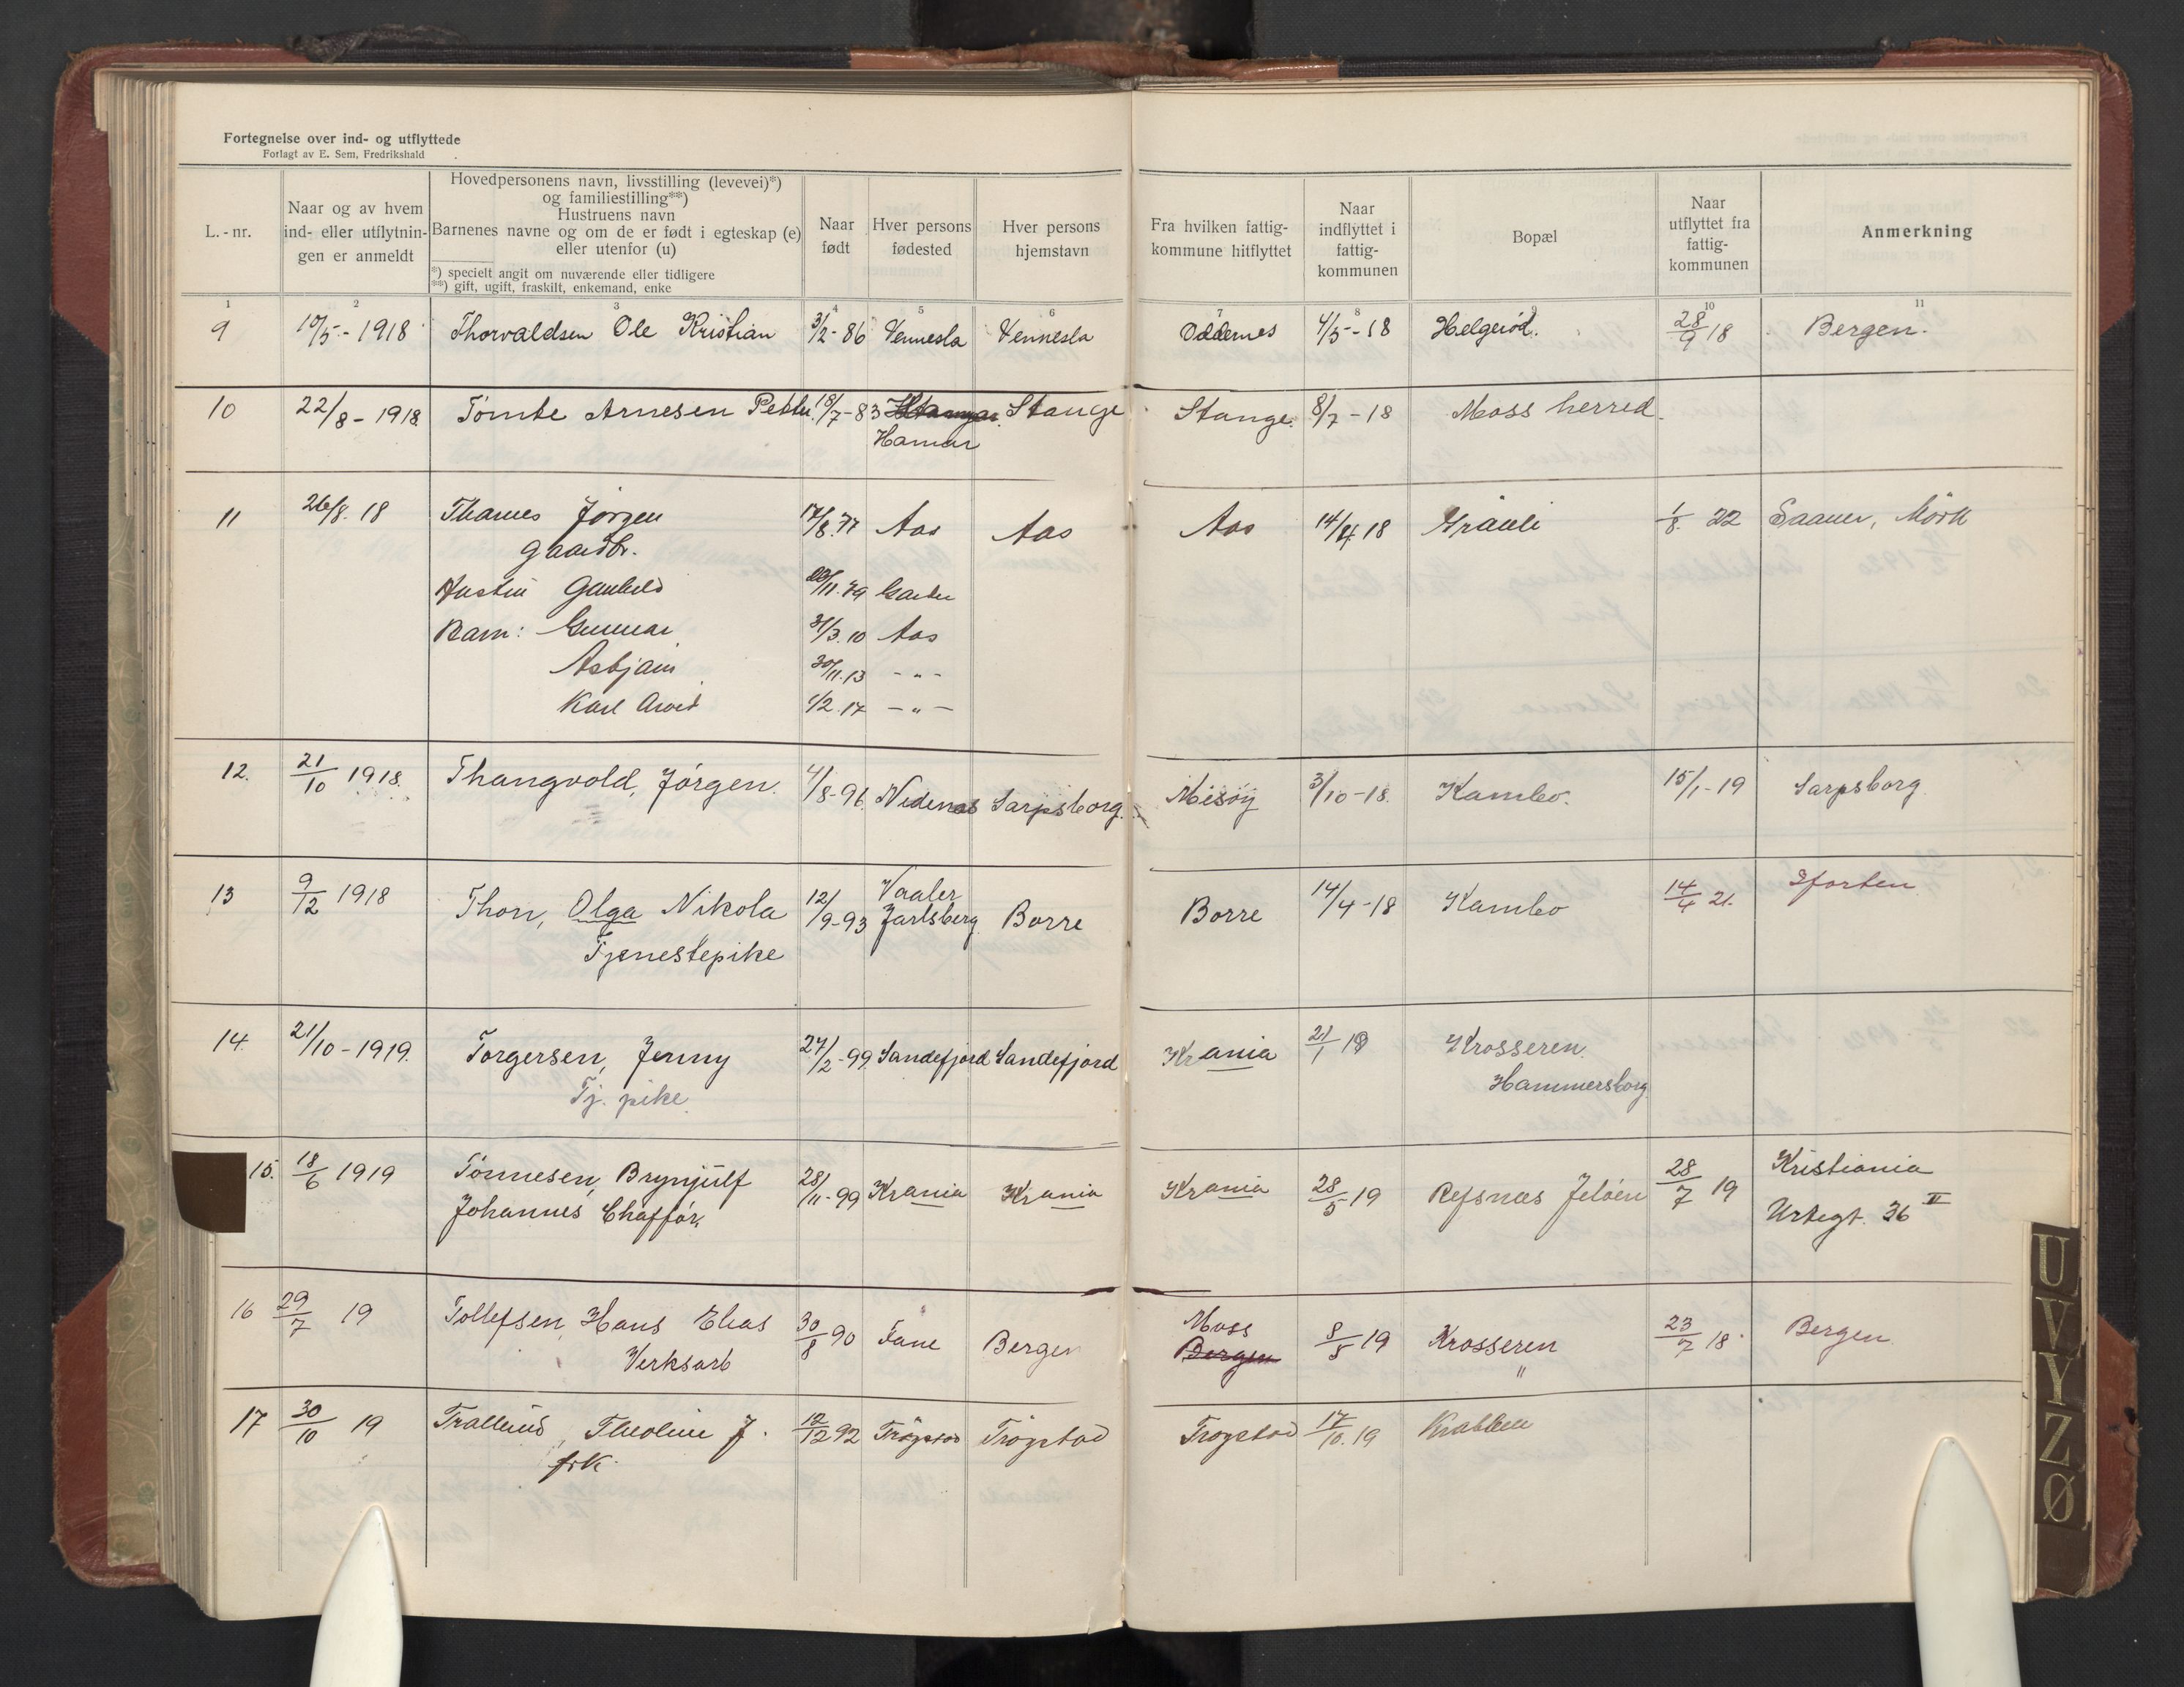 Fortegnelse over ind- og utflyttede
Forlagt av E. Sem, Fredrikshald
L.-nr.
Naar og av hvem ind- eller utflytningen er anmeldt
Hovedpersonens navn, livsstilling (levevei)*)
og familiestilling**)
Hustruens navn
Barnenes navne og om de er født i egteskap (e)
eller utenfor (u)
*) specielt angit om nuværende eller tidligere
**) gift, ugift, fraskilt, enkemand, enke
Naar født
Hver persons fødested
Hver persons hjemstavn
Fra hvilken fattigkommune hitflyttet
Naar indflyttet i fattigkommunen
Bopæl
Naar utflyttet fra fattigkommunen
Anmerkning
1 2 3 4 5 6 7 8 9 10 11
9 10/5-1918 Thorvaldsen Ole Kristian 3/2-86 Vennesla Vennesla Oddernes 4/5-18 Helgerød. 28/9 18 Bergen.
10 22/8-1918. Tømte Arnesen Petter. 18/7-83 Stange Stange. 8/7-18 Moss herred.
Hamar
11 26/8. 18 Thames Jørgen 17/8.77 Aas Aas Aas 14/4 18 Gråuli 1/8. 22 Saaner, Mörk
gaardbr.
Hustru Gunhild 23/11.79
Barn: Gunnar 31/3.10 Aas
Asbjørn 30/11.13 -"-
Karl Arvid 1/2.17 -"-
12. 21/10 1918. Thangvold, Jørgen. 4/8-96. Nidenes Sarpsborg. Misøy 3/10-18. Kambo. 15/1-19 Sarpsborg
13 9/12 1918 Thon, Olga Nikola 12/9-93 Vaaler Jarlsberg Borre Borre 14/4-18 Kambo 14/4 21. Horten
Tjenestepike
14. 21/10-1919. Torgersen, Jenny 27/2-99 Sandefjord Sandefjord Krania 21/1 19 Krosseren.
Tj. pike Hammersborg
15. 18/6 1919 Tönnesen, Brynjülf 28/11-99 Krania Krania Krania 28/5 19 Refsnæs Jeløen 28/7 19 Kristiania
Johannes Chaffør, Urtegt. 36 II
16 29/7 19 Tollefsen, Hans Elias 30/8 90 Fane Bergen Moss 8/5 19 Krosseren 23/7 18 Bergen
Verksarb Bergen "
17 30/10 19 Theoline J. 12/12 92 Trögstad Trögstad Trogstad 17/10.19
frk.
U
V
Y
Z
Ø